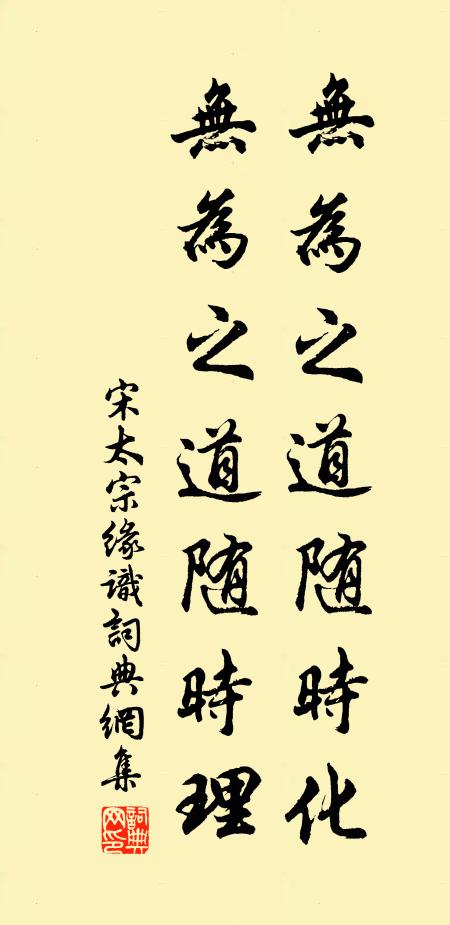 無為之道随時化
無為之道随時理
宋太宗緣識詞典網集
詞典網印